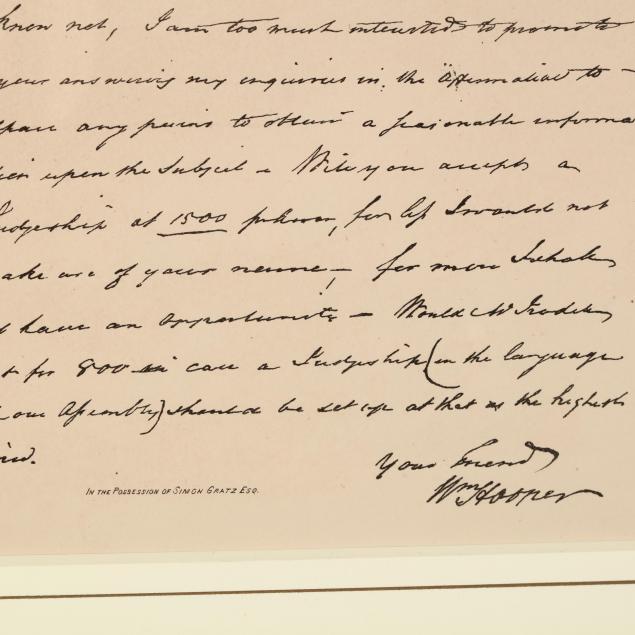 know not, I am too much interested to promote
your answering my inquiries in the affirmative to
spare any pains to obtain a seasonable informa
upon the Subject - Will you accept a
Judgeship at 1500 for less I would not
make use of your name, - for more I shall
have an opportunity - Would Mr
for 800 in case a Judgeship (in the language
our Assembly) should be set up at that as the highest
Your Friend
Wm Hooper
IN THE POSSESSION OF SIMON GRATZ ESQ.